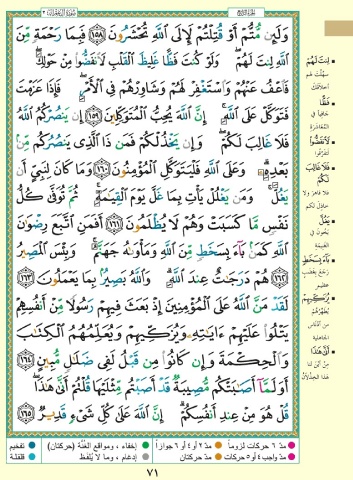 سورة آل عمران ٣
الجزء الرابع
وَلَئِن مُّتُّمْ أَوْ قُتِلْتُمْ لَإِلَى ٱللَّهِ تُحْشَرُونَ ١٥٨ فَبِمَا رَحْمَةٍ مِّنَ
ٱللَّهِ لِنتَ لَهُمْ ۖ وَلَوْ كُنتَ فَظًّا غَلِيظَ ٱلْقَلْبِ لَٱنفَضُّوا۟ مِنْ حَوْلِكَ ۖ
فَٱعْفُ عَنْهُمْ وَٱسْتَغْفِرْ لَهُمْ وَشَاوِرْهُمْ فِى ٱلْأَمْرِ ۖ فَإِذَا عَزَمْتَ
فَتَوَكَّلْ عَلَى ٱللَّهِ ۚ إِنَّ ٱللَّهَ يُحِبُّ ٱلْمُتَوَكِّلِينَ ١٥٩ إِن يَنصُرْكُمُ ٱللَّهُ
فَلَا غَالِبَ لَكُمْ ۖ وَإِن يَخْذُلْكُمْ فَمَن ذَا ٱلَّذِى يَنصُرُكُم مِّنۢ
بَعْدِهِۦ ۗ وَعَلَى ٱللَّهِ فَلْيَتَوَكَّلِ ٱلْمُؤْمِنُونَ ١٦٠ وَمَا كَانَ لِنَبِىٍّ أَن
يَغُلَّ ۚ وَمَن يَغْلُلْ يَأْتِ بِمَا غَلَّ يَوْمَ ٱلْقِيَـٰمَةِ ۚ ثُمَّ تُوَفَّىٰ كُلُّ
نَفْسٍ مَّا كَسَبَتْ وَهُمْ لَا يُظْلَمُونَ ١٦١ أَفَمَنِ ٱتَّبَعَ رِضْوَٰنَ
ٱللَّهِ كَمَنۢ بَآءَ بِسَخَطٍ مِّنَ ٱللَّهِ وَمَأْوَىٰهُ جَهَنَّمُ ۚ وَبِئْسَ ٱلْمَصِيرُ
١٦٢ هُمْ دَرَجَـٰتٌ عِندَ ٱللَّهِ ۗ وَٱللَّهُ بَصِيرٌۢ بِمَا يَعْمَلُونَ ١٦٣
لَقَدْ مَنَّ ٱللَّهُ عَلَى ٱلْمُؤْمِنِينَ إِذْ بَعَثَ فِيهِمْ رَسُولًا مِّنْ أَنفُسِهِمْ
يَتْلُوا۟ عَلَيْهِمْ ءَايَـٰتِهِۦ وَيُزَكِّيهِمْ وَيُعَلِّمُهُمُ ٱلْكِتَـٰبَ
وَٱلْحِكْمَةَ وَإِن كَانُوا۟ مِن قَبْلُ لَفِى ضَلَـٰلٍ مُّبِينٍ ١٦٤
أَوَلَمَّآ أَصَـٰبَتْكُم مُّصِيبَةٌ قَدْ أَصَبْتُم مِّثْلَيْهَا قُلْتُمْ أَنَّىٰ هَـٰذَا ۖ
قُلْ هُوَ مِنْ عِندِ أَنفُسِكُمْ ۗ إِنَّ ٱللَّهَ عَلَىٰ كُلِّ شَىْءٍ قَدِيرٌ ١٦٥
لِنتَ لَهُمْ
سهّلت لهم
أخلاقك
فَظًّا
جافياً في
المعاشرة
لَٱنفَضُّوا۟
لتفرّقوا
فَلَا غَالِبَ
لَكُمْ
فلا قاهر ولا
خاذل لكم
يَغُلَّ
يخون في
الغنيمة
بَآءَ بِسَخَطٍ
رجع بغضب
عظيم
يُزَكِّيهِمْ
يطهّرهم
من أدناس
الجاهلية
أَنَّىٰ هَـٰذَا
من أين لنا
هذا الخذلان
مدّ ٦ حركات لزوماً
مدّ ٢ أو ٤ أو ٦ جوازاً
إخفاء، ومواقع الغُنَّة (حركتان)
تفخيم
مدّ واجب ٤ أو ٥ حركات
مدّ حركتان
إدغام، وما لا يُلفَظ
قلقلة
٧١